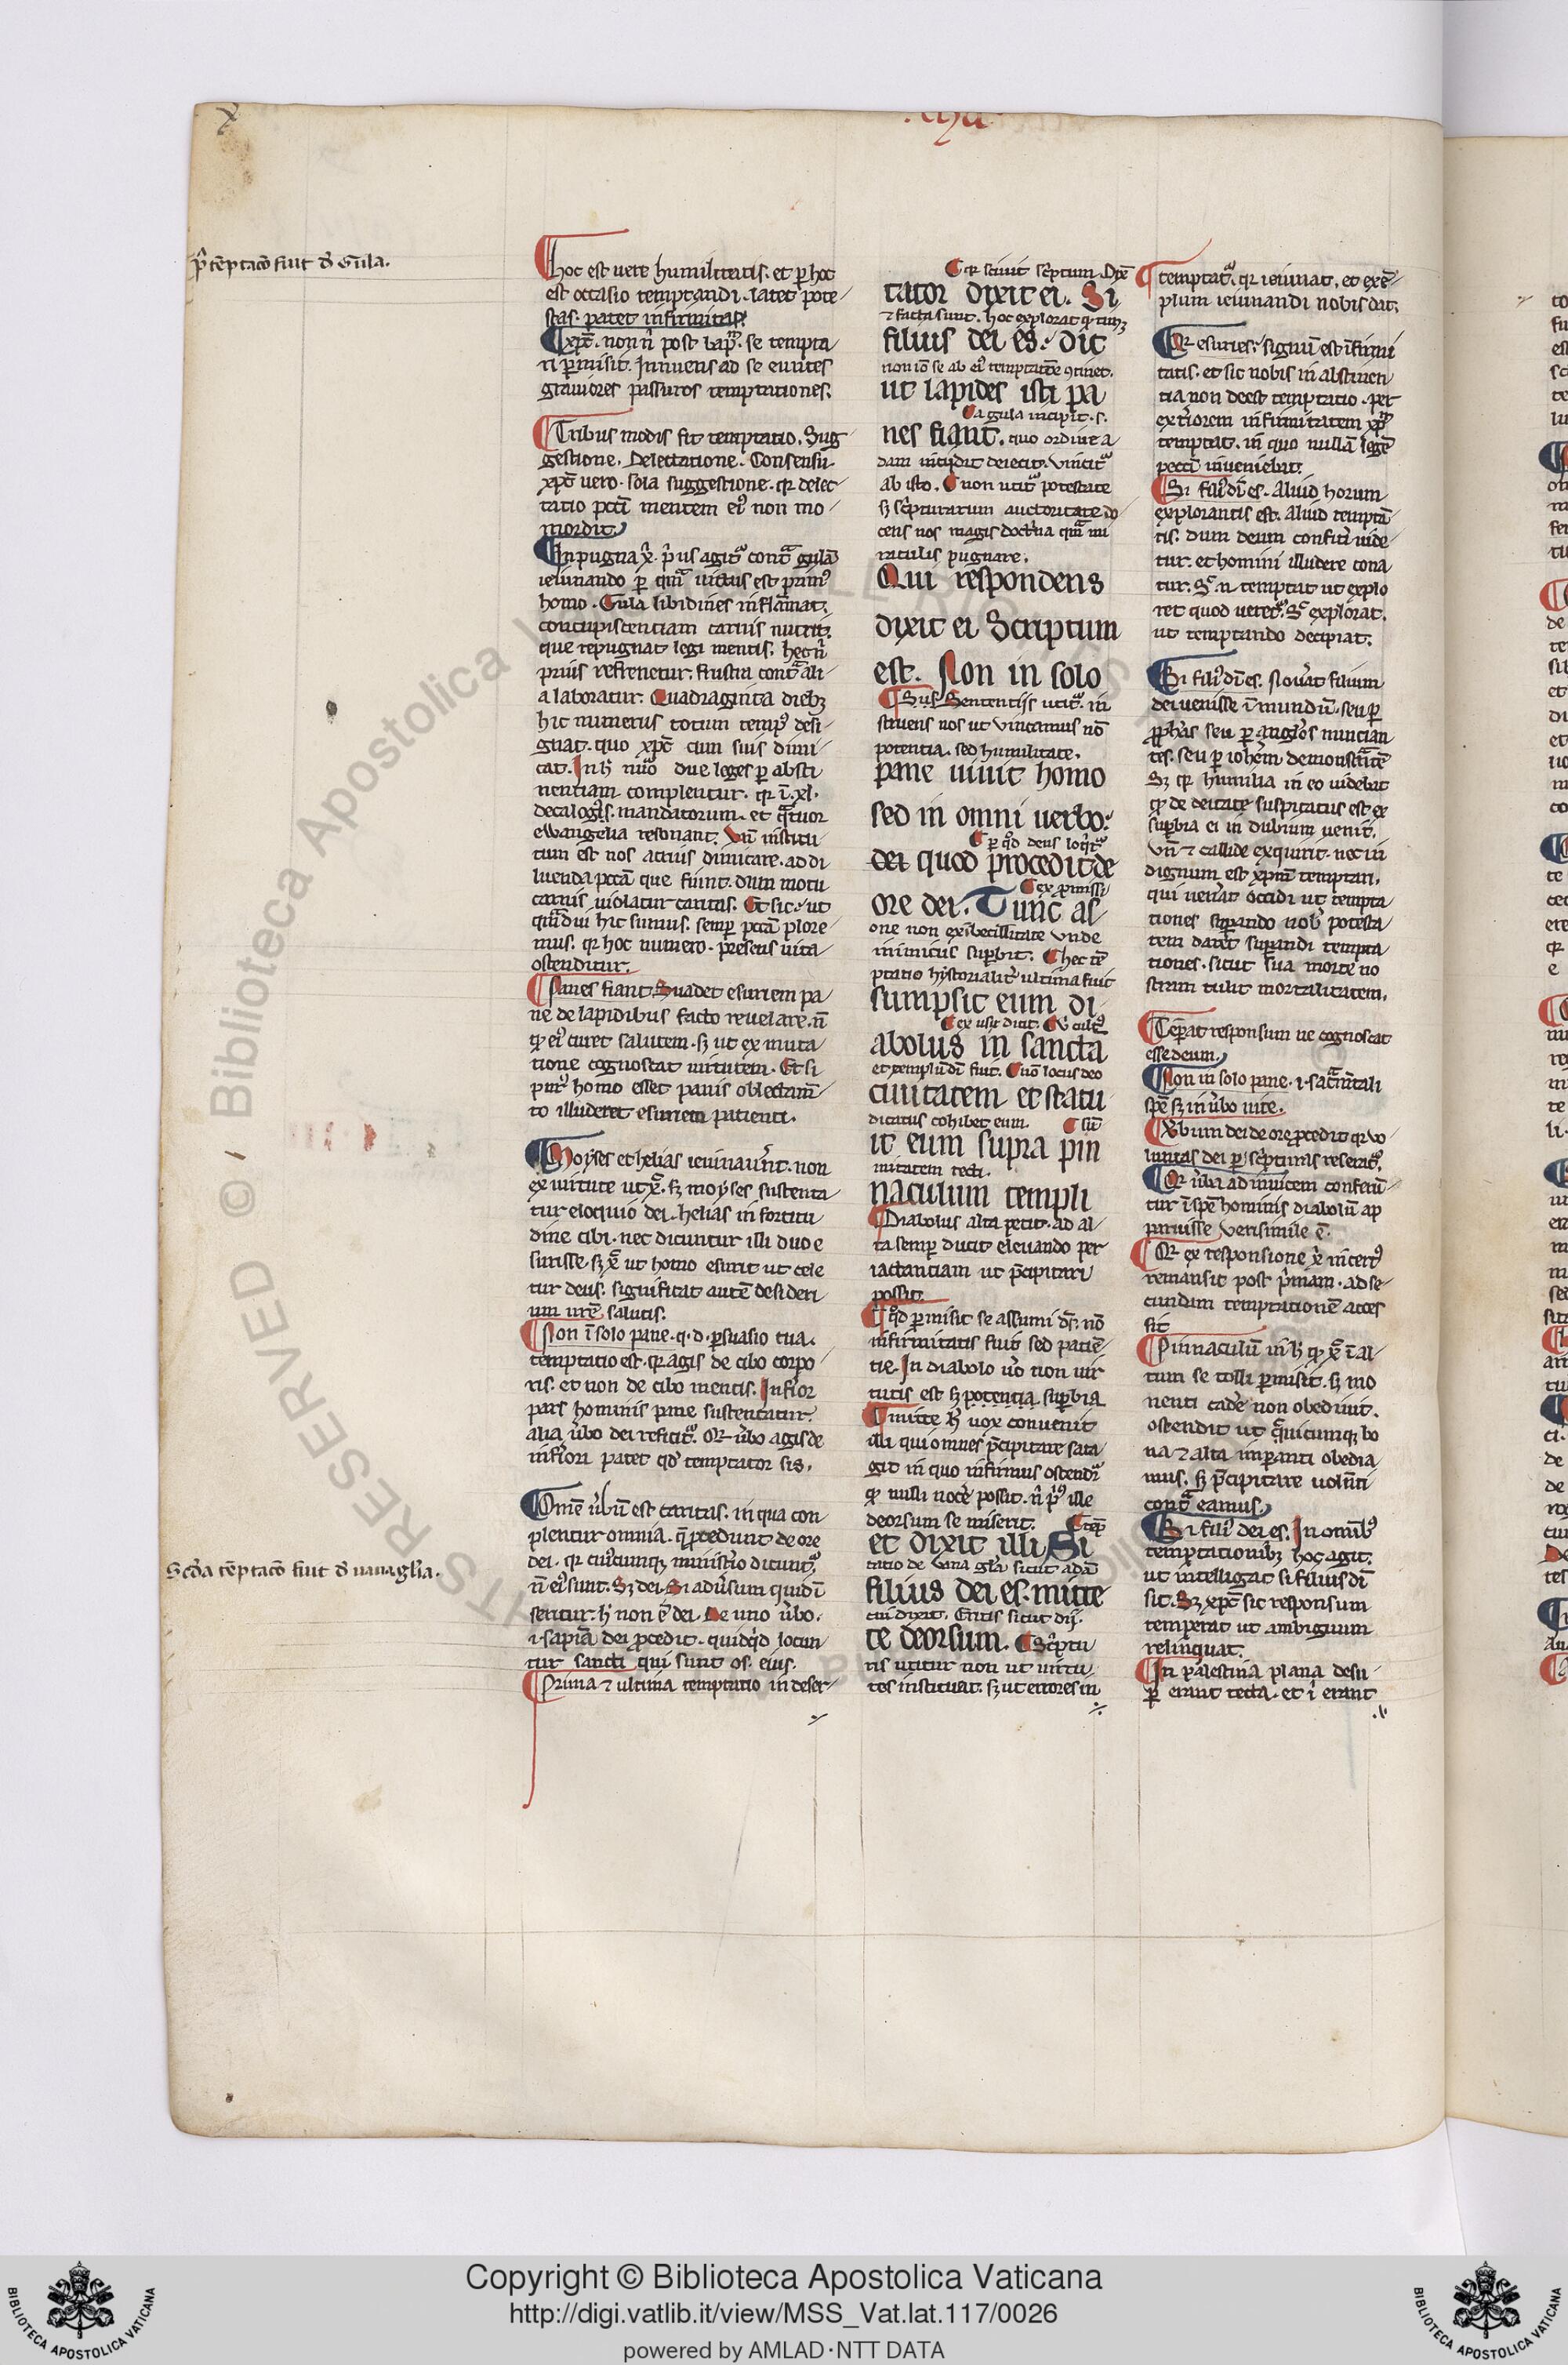 p̃ tẽptacõ fiut d̃ Gula.
hoc est uere humilitatis. et per hoc
est occasio temptandi. latet pote
stas. patet infirmitas.
xp̃c. non ñ post bap̃m. se tempta
ri p̃misit. Innuens ad se eun̄tes
grauiores passuros temptationes.
Tribus modis fit temptatio. Sug
gestione. Delectatione. Consensu.
xp̃c uero. sola suggestione. qr delec
tatio pctĩ mentem eiꝰ non mo
mordit.
In pugna x̃. pͥus agitᷣ cont̃ gulã
ieiunando p̱ qm̃ uictus est primꝰ
homo. Gula libidines inflãmat.
concupiscentiam carnis nutrit.
que repugnat legi mentis. hec ñ
prius refrenetur. frustra cont̃ ali
a laboratur. Quadraginta diebꝫ
hic numerus totum tempꝰ desi
gnat. quo xp̃c cum suis dimi
cat. In hͦ nũo due leges p̱ absti
nentiam complentur. qr ĩ .xl.
decalogꝰ. mandatorum. et q̃tuor
ewangelia resonant. Vñ institu
tum est nos actius dimicare. ad di
luenda pctã que fiunt. dum motu
carnis uiolatur caritas. Et sic. ut
qm̃diu hic sumus. semp̱ pctã plore
mus. qr hoc numero. presens uita
ostenditur.
Panes fiant. Suadet esuriem pa
ne de lapidibus facto reuelare. ñ
ꝙ eiꝰ curet salutem. sꝫ ut ex muta
tione cognoscat uirtutem. Et si
purꝰ homo esset panis oblectam̃
to illuderet esuriem patienti.
Moyses et helias ieiunauer̃t. non
ex uirtute ut x̃c. sꝫ moyses sustenta
tur eloquio dei. helias in fortitu
dine cibi. nec dicuntur illi duo e
surisse. sꝫ x̃c ut homo esurit ut cele
tur deus. significat autẽ desideri
um nr̃e salutis.
Non ĩ solo pane. q. d. p̱suasio tua.
temptatio est. qr agis de cibo corpo
ris. et non de cibo mentis. Infior
pars hominis pane sustentatur.
alia ũbo dei reficitᷣ. Qr ũbo agis de
infiori patet qd temptator sis.
Om̃e ũbũ est caritas. in qua con
plentur omnia. q̃ p̱cedunt de ore
dei. qr cuiꝰcunqꝫ ministio dicuntᷣ
ñ eiꝰ sunt. Sꝫ dei. Si adũsum quid ĩ
seritur. hͦ non ẽ dei. De uno ũbo.
i. sapĩa dei p̱cedit. quidqͥd locun
tur sancti qui sunt os eius.
Prima ⁊ ultima temptatio in deser
Scda tẽptacõ fiut d̃ uanaglĩa.
.ctha
qr sciuit sc̃ptum. Dixẽ
tator dixit ei. Si
⁊ facta sunt. hoc explorat ꝙ timꝫ
filius dei es. dic
non iõ se ab eiꝰ temptatiõe ꝯtinet.
ut lapides isti pa
a gula incipit. s.
nes fiant. quo ordine a
dam incidit deiecit. vincitᷣ
ab isto. non utitᷣ potestate
sꝫ sc̃pturarum auctoritate do
cens nos magis doctna qm̃ mi
raculis pugnare.
Qui respondens
dixit ei Scriptum
est. Non in solo
Suis Sententijs utitᷣ. in
struens nos ut vincamus nõ
potentia. sed humilitate.
pane uiuit homo
sed in omni uerbo.
p̱ qͦd deus loqͥtᷣ
dei quod procedit de
ex p̱missi
ore dei. Tunc as
one non ex ĩbecillitate vnde
inimicus superbit. hec tẽ
ptatio hystorialitᷣ ultima fuit
sumpsit eum di
ex usu dicit.
abolus in sancta
et templũ dei fuit. nõ locus deo
ciuitatem et statu
dicatus cohibet eum. sũ
it eum supra pin
mitatem tecti.
naculum templi
Diabolus alta petit. ad al
ta semp̱ ducit eleuando per
iactantiam ut p̃cipitari
possit.
Qͦd p̱misit se assumi ds̃. nõ
infirmitatis fuit sed patiẽ
tie. In diabolo ũo non uir
tutis est sꝫ potencia superbia
mitte hͦ uox conuenit
illi qui omnes p̃cipitare sata
git in quo infirmus ostendit̃
ꝙ nulli nocẽ possit. ñ pͥꝰ ille
deorsum se miserit. tẽp
et dixit illi Si
tatio de Vana glã sicut adã
filius dei es. mitte
cui dixit. Eritis sicut dij.
te deorsum. Sc̃ptu
ris utitur non ut uirtu
tes instituat. sꝫ ut errores in
temptatᷣ. qr ieiunat. et exẽ
plum ieiunandi nobis dat.
Qr esuries. signũ est ĩfirmi
tatis. et sic nobis in abstinen
tia non deest temptatio. per
exteriorem infirmitatem xp̃m
temptat. in quo nullã legẽ
peccti inueniebat.
Si filiꝰ di es. Aliud horum
explorantis est. Aliud temptã
tis. dum deum confitei uide
tur. et homini illudere cona
tur. S; ñ temptat ut explo
ret quod ueretᷣ. S; explorat.
ut temptando decipiat.
Si filiꝰ di es. Nouat filium
dei uenisse ĩ mundũ. seu p̱
pphas seu p̱ anglos nuncian
tes. seu p̱ iohem demonstrãtẽ
Sꝫ qr humilia in eo uidebat
ꝙ de deitate suspicatus est ex
superbia ei in dubium uenit.
vñ ⁊ callide exquirit. nec in
dignum est xpm temptari.
qui uenat occidi ut tempta
tiones superando nob̃ potesta
tem daret superandi tempta
tiones. sicut sua morte no
stram tulit mortalitatem.
Temp̱at responsum ne cognoscat
esse deum.
Non in solo pane. i. sacramẽtali
spẽ sꝫ in ũbo uite.
Ũbum dei de ore p̱cedit qr uo
luntas dei p̱ sc̃pturas reseratᷣ.
Qr ũba ad inuicem conferũ
tur ĩ spẽ hominis diabolũ ap
paruisse verisimile ẽ.
Qr ex responsione x̃i incertꝰ
remansit post primam. ad se
cundam temptationẽ acces
sit
Pinnaculũ in hͦ ꝙ x̃c ĩ al
tum se tolli p̱misit. sꝫ mo
nenti cadẽ non obediuit.
ostendit ut q̃uicumqꝫ bo
na ⁊ alta imp̱anti obedia
mus. sꝫ p̃cipitare uolenti
cont̃ eamus.
Si filiꝰ dei es. In omibꝰ
temptationibꝫ hoc agit.
ut intelligat si filius di
sit. Sꝫ xpc sic responsum
temperat ut ambiguum
relinquat.
In palestina plana desu
p̱ erant tecta. et ĩ erant
Copyright © Biblioteca Apostolica Vaticana
http://digi.vatlib.it/view/MSS_Vat.lat.117/0026
powered by AMLAD·NTT DATA